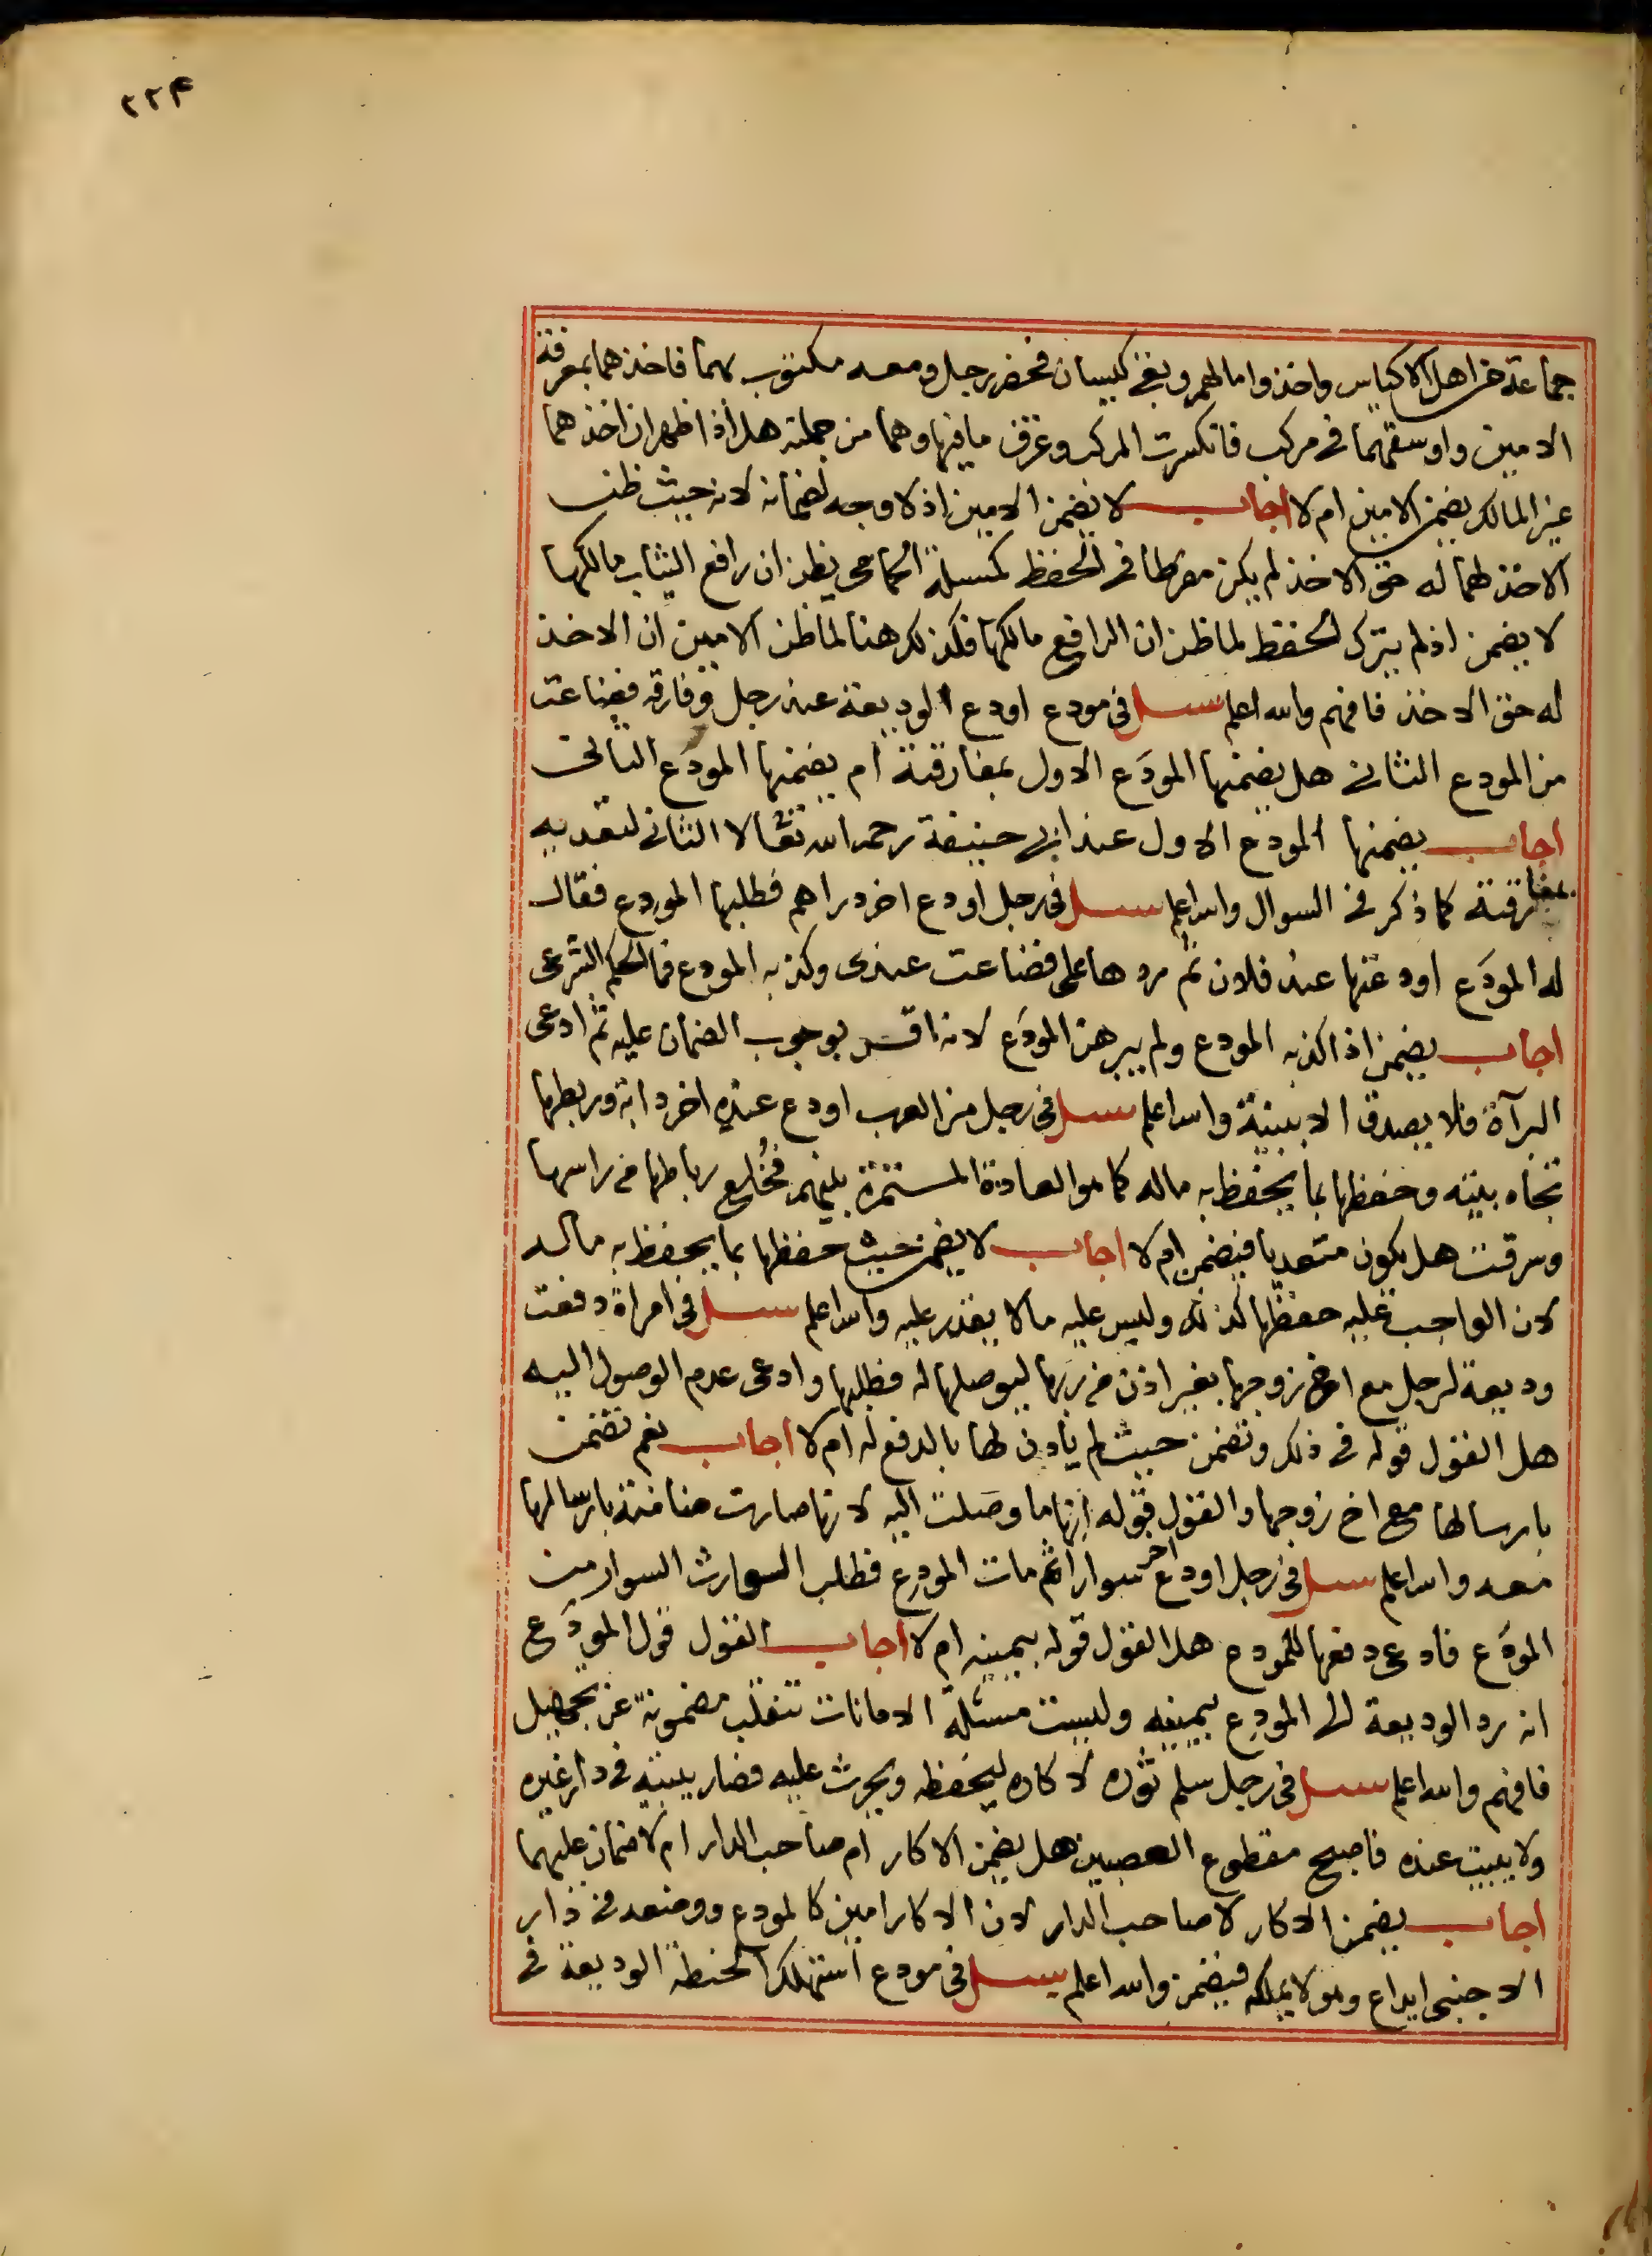 ٢٢٤
جماعة من اهل الاكياس واخذوا مالهم وبقى كيسان فحضر رجل ومعه مكتوب بهما فاخذهما بمعرفة
الامين واوسقهما فى مركب فانكسرت المركب وغرق ما فيها وهما من جملته هل اذا ظهر ان اخذهما
غير المالك يضمن الامين ام لا اجاب لا يضمن الامين اذ لا وجه لضمانه لانه حيث ظن
الاخذ لهما له حق الاخذ لم يكن مفرطا فى الحفظ كمسئلة الحمامى يظن ان رافع الثياب مالكها
لا يضمن اذ لم يترك الحفظ لما ظن ان الرافع مالكها فكذلك هنا لما ظن الامين ان الاخذ
له حق الاخذ فافهم والله اعلم سئل فى مودع اودع الوديعة عند رجل وفارقه فضاعت
من المودع الثانى هل يضمنها المودَع الاول بمفارقته ام يضمنها المودَع الثانى
اجاب يضمنها المودع الاول عند ابى حنيفة رحمه الله تعالى لا الثانى لتعديه
بمفارقته كما ذكر فى السوال والله اعلم سئل فى رجل اودع اخر دراهم فطلبها المودِع فقال
له المودَع اودعتها عند فلان ثم ردها على فضاعت عندى وكذبه المودع فما الحكم الشرعى
اجاب يضمن اذا كذبه المودع ولم يبرهن المودَع لانه اقر بوجوب الضمان عليه ثم ادعى
البرآة فلا يصدق الا ببينة والله اعلم سئل فى رجل من العرب اودع عنده اخر دابة وربطها
تجاه بيته وحفظها بما يحفظ به ماله كما هو العادة المستمرة بينهم فخُلع رباطها من راسها
وسرقت هل يكون متعديا فيضمن ام لا اجاب لا يضمن حيث حفظها بما يحفظ به ماله
لان الواجب عليه حفظها كذلك وليس عليه ما لا يقدر عليه والله اعلم سئل فى امراة دفعت
وديعة لرجل مع اخى زوجها بغير اذن من ربها ليوصلها له فطلبها وادعى عدم الوصول اليه
هل القول قوله فى ذلك وتضمن حيث لم يأذن لها بالدفع له ام لا اجاب نعم تضمن
بارسالها مع اخ زوجها والقول قوله انها ما وصلت اليه لانها صارت ضامنة بارسالها
معه والله اعلم سئل فى رجل اودع اخر سوارا ثم مات المودِع فطلب الوارث السوار من
المودَع فادعى دفعها للمودع هل القول قوله بيمينه ام لا اجاب القول قول المودَع
انه رد الوديعة الى المودِع بيمينه وليست مسئلة الامانات تنقلب مضمونة عن تجهيل
فافهم والله اعلم سئل فى رجل سلم ثوره لاكاره ليحفظه ويحرث عليه فصار يبيته فى دار غيره
ولا يبيت عنده فاصبح مقطوع العصبين هل يضمن الاكار ام صاحب الدار ام لا ضمان عليهما
اجاب يضمن الاكار لا صاحب الدار لان الاكار امين كالمودع ووضعه فى دار
الاجنبى ايداع وهو لا يملكه فيضمن والله اعلم سئل فى مودع استهلك الحنطة الوديعة فى